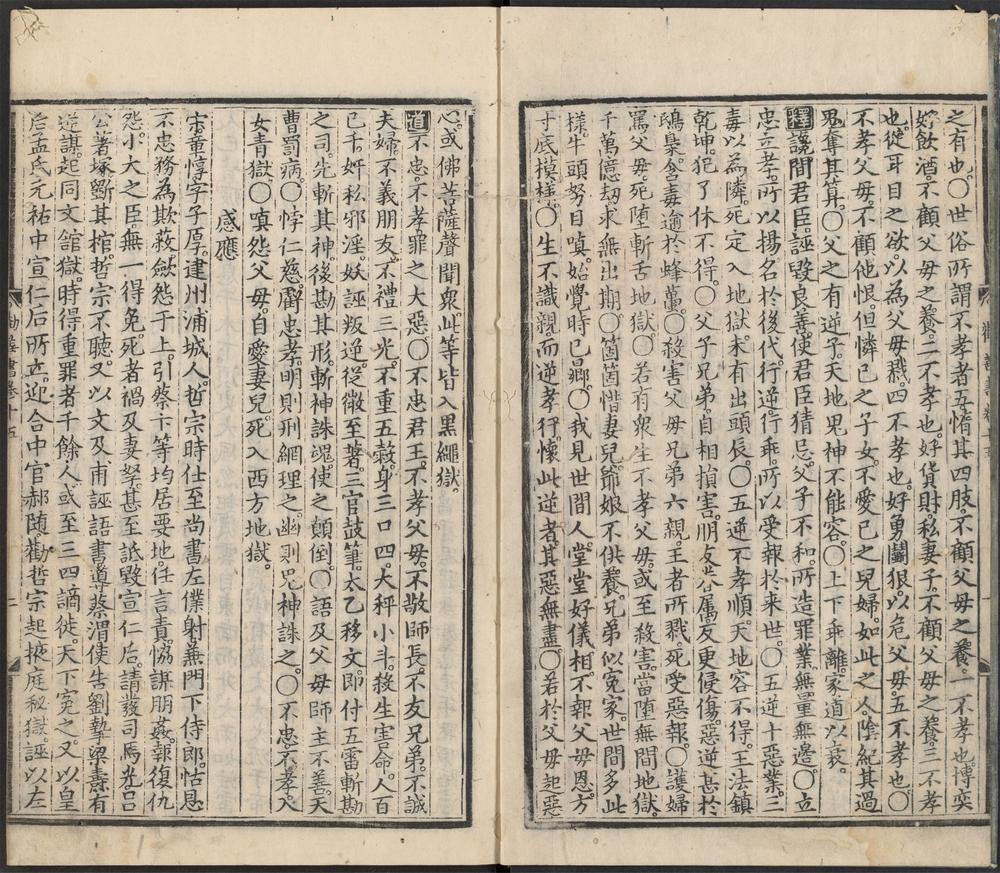 之有也〇世俗所謂不孝者五惰其四肢不顧父母之養一不孝也博奕
好飲酒不顧父母之養二不孝也好貨財私妻子不顧父母之養三不孝
也從耳目之欲以為父母戮四不孝也好勇鬭狠以危父母五不孝也〇
不孝父母不顧他恨但憐己之子女不愛己之兒婦如此之人陰紀其過
鬼奪其算〇父之有逆子天地鬼神不能容〇上下乖離家道以衰
釋讒間君臣誣毀良善使君臣猜忌父子不和所造罪業無量無邊〇立
忠立孝所以揚名於後代行逆行乖所以受報於来世〇五逆十惡業三
毒以為隣死定入地獄未有出頭辰〇五逆不孝順天地容不得王法鎮
乾坤犯了休不得〇父子兄弟自相損害朋友眷属友更侵傷惡逆甚於
鴟梟含毒逾於蜂蠆〇殺害父母兄弟六親王者所戮死受惡報〇護婦
罵父母死墮斬舌地獄〇若有衆生不孝父母或至殺害當墮無間地獄
千萬億劫求無出期〇箇箇惜妻兒爺娘不供養兄弟似寃家世間多此
樣牛頭努目嗔始覺時已𨝸〇我見世間人堂堂好儀相不報父母恩方
寸底模㨾〇生不識親而逆孝行懷此逆者其惡無盡〇若於父母起惡
心或佛菩薩聲聞衆此等皆入黑繩獄
道不忠不孝罪之大惡〇不忠君王不孝父母不敬師長不友兄弟不誠
夫婦不義朋友不禮三光不重五穀身三口四大秤小斗殺生害命人百
己千奸私邪淫妖誣叛逆從微至著三官鼓筆太乙移文即付五雷斬勘
之司先斬其神後勘其形斬神誅魂使之顛倒〇語及父母師主不善天
曹罰病〇悖仁慈辭忠孝明則刑網理之幽則鬼神誅之〇不忠不孝入
女青獄〇嗔怨父母自愛妻兒死入西方地獄
感應
宋章惇字子厚建州浦城人哲宗時仕至尚書左僕射兼門下侍郎怙惡
不忠務為欺蔽斂怨于上引蔡卞等均居要地任言責恊謀朋姦報復仇
怨小大之臣無一得免死者禍及妻孥甚至詆毀宣仁后請發司馬光吕
公著塚斵其棺哲宗不聽又以文及甫誣語書導蔡渭使告劉摯梁燾有
逆謀起同文舘獄時得重罪者千餘人或至三四謫徙天下寃之又以皇
后孟氏元祐中宣仁后所立迎合中官郝随勸哲宗起掖庭秘獄誣以左